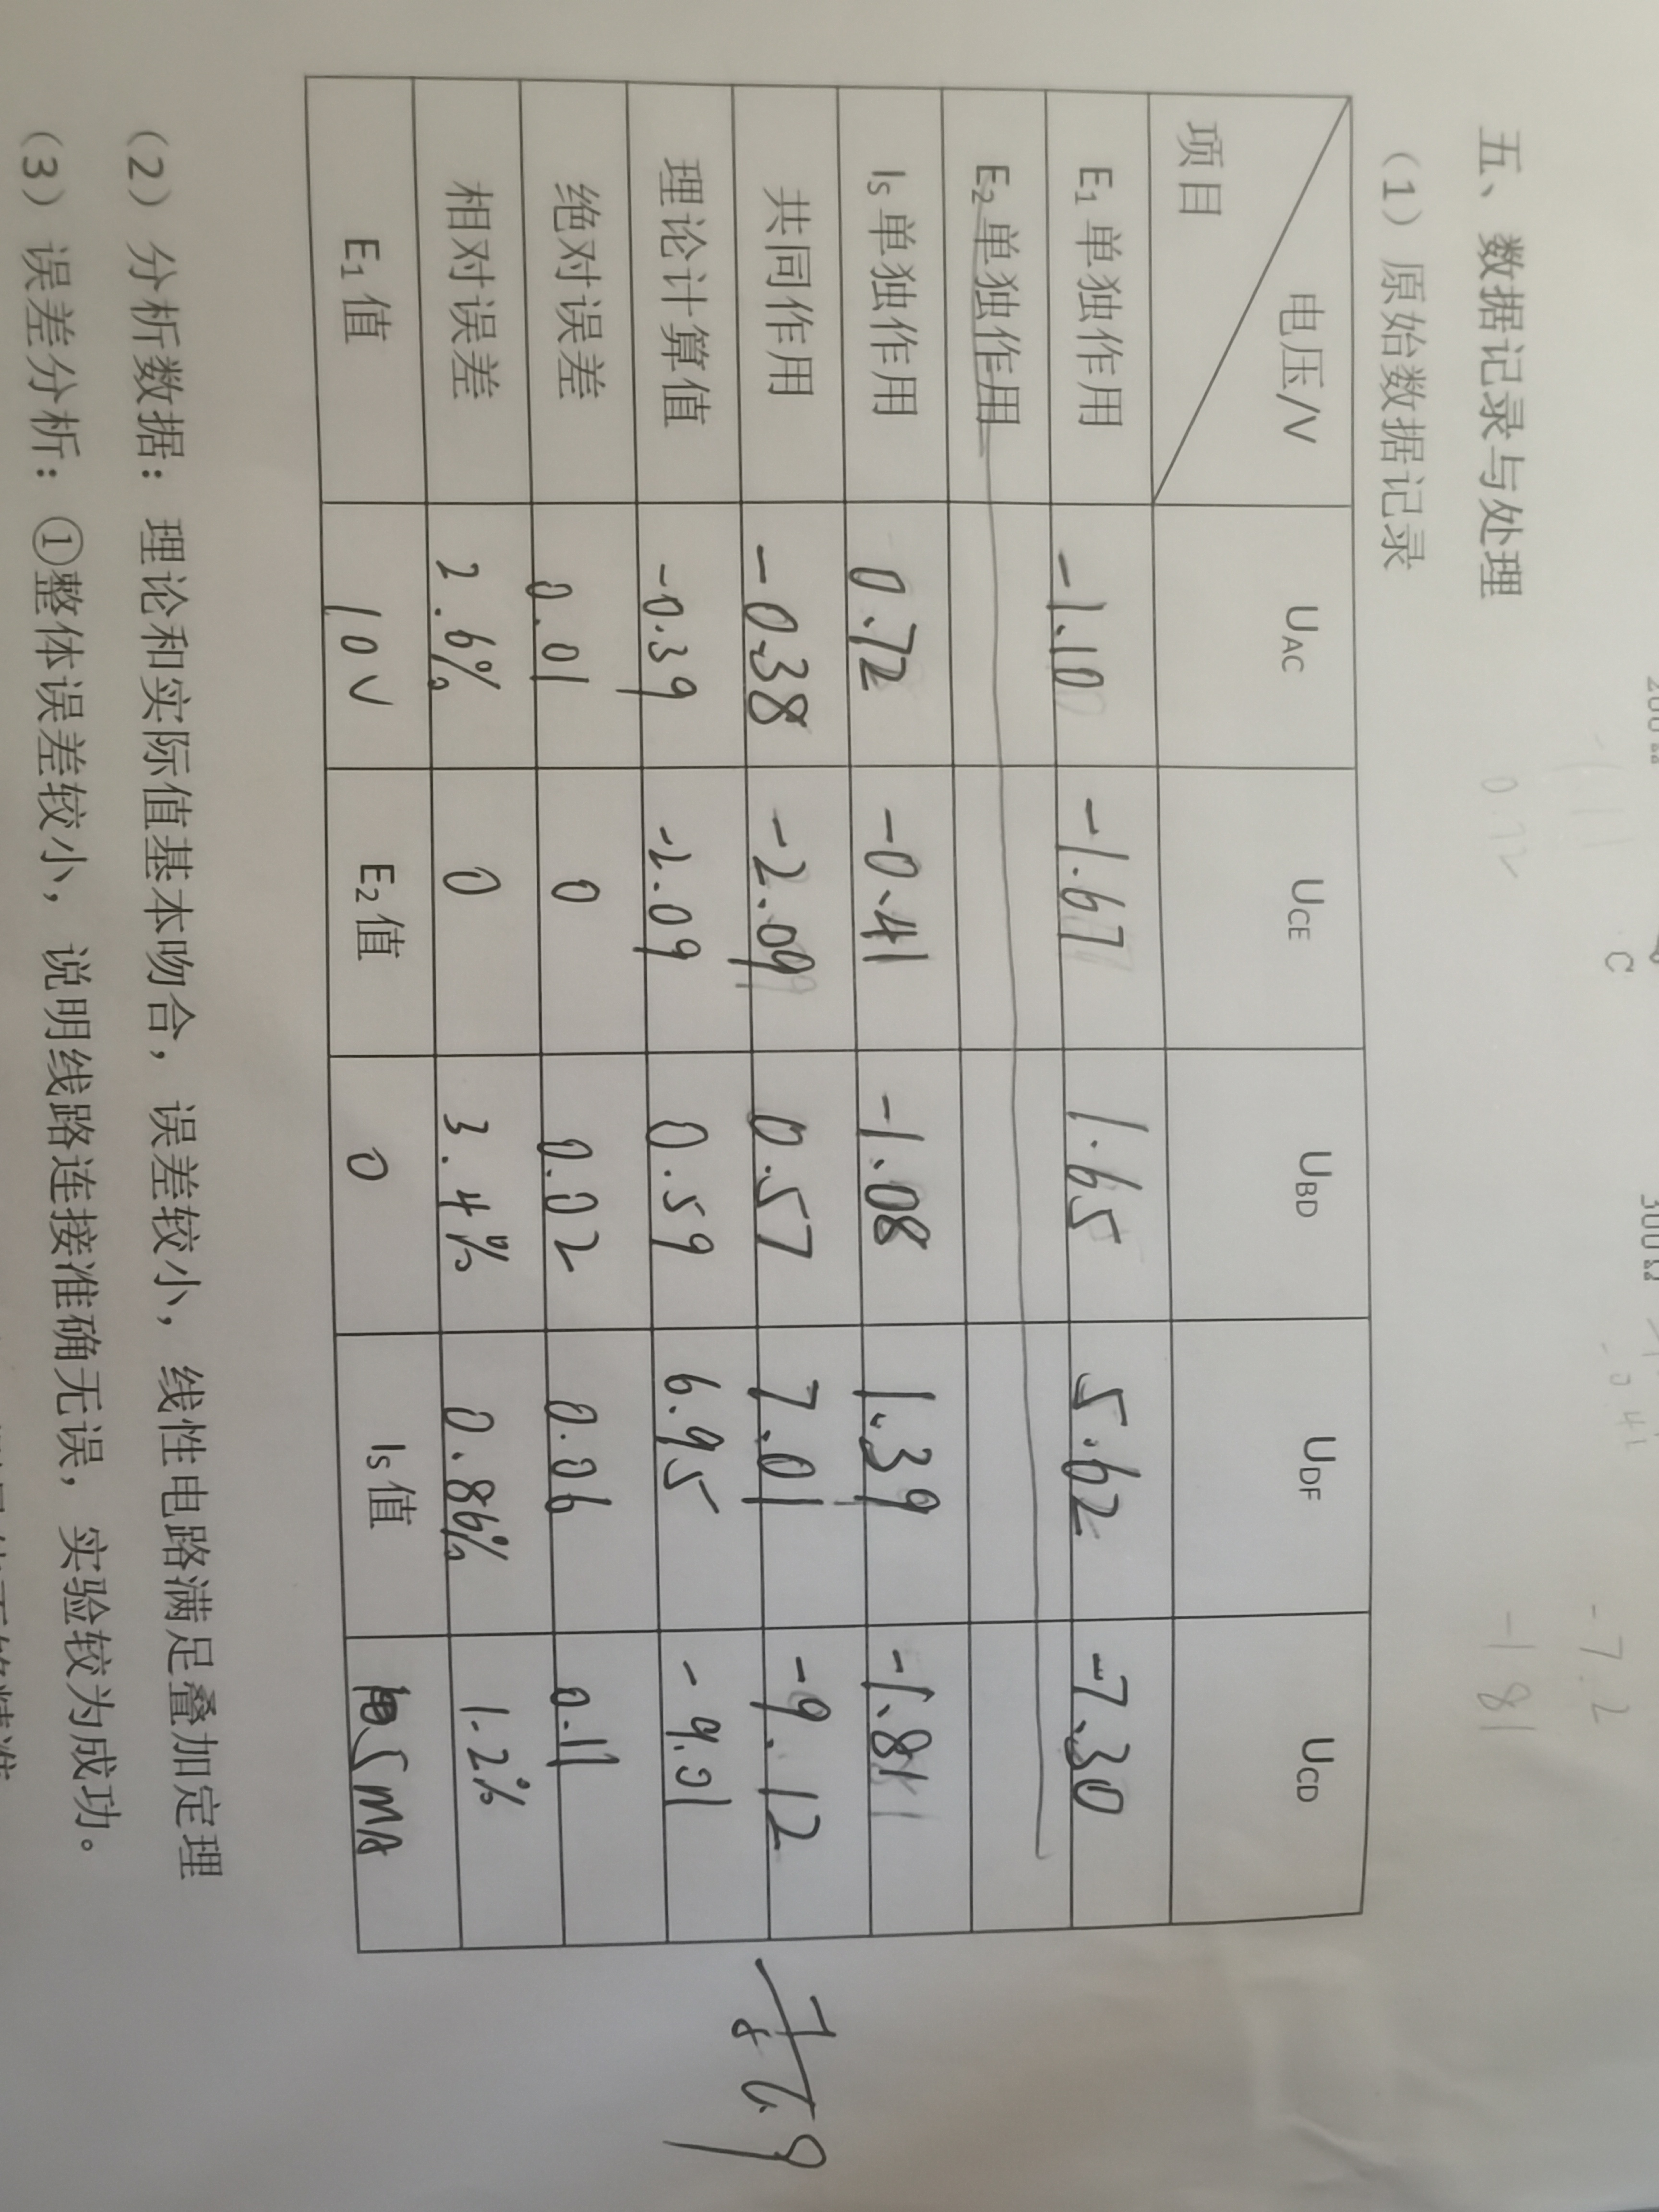 200Ω
C
300Ω
-0.41
-7.2
0.72
-1 81
五、数据记录与处理
（1）原始数据记录
项目 电压/V UAC UCE UBD UDF UCD
E₁单独作用 -1.10 -1.67 1.65 5.62 -7.30
E₂单独作用
Is单独作用 0.72 -0.41 -1.08 1.39 -1.81
共同作用 -0.38 -2.09 0.57 7.01 -9.12
理论计算值 -0.39 -2.09 0.59 6.95 -9.01
绝对误差 0.01 0 0.02 0.06 0.11
相对误差 2.6% 0 3.4% 0.86% 1.2%
E₁值 10V E₂值 0 Is值 5mA
（2）分析数据：理论和实际值基本吻合，误差较小，线性电路满足叠加定理
（3）误差分析：①整体误差较小，说明线路连接准确无误，实验较为成功。